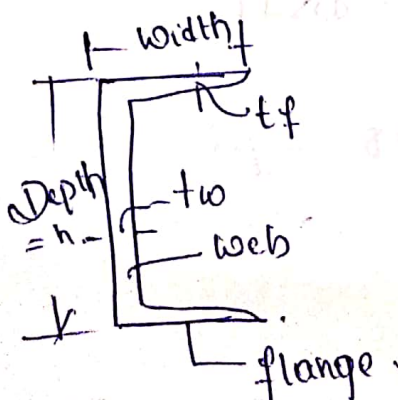 Width
tf
Depth
= h.
tw
web
flange.